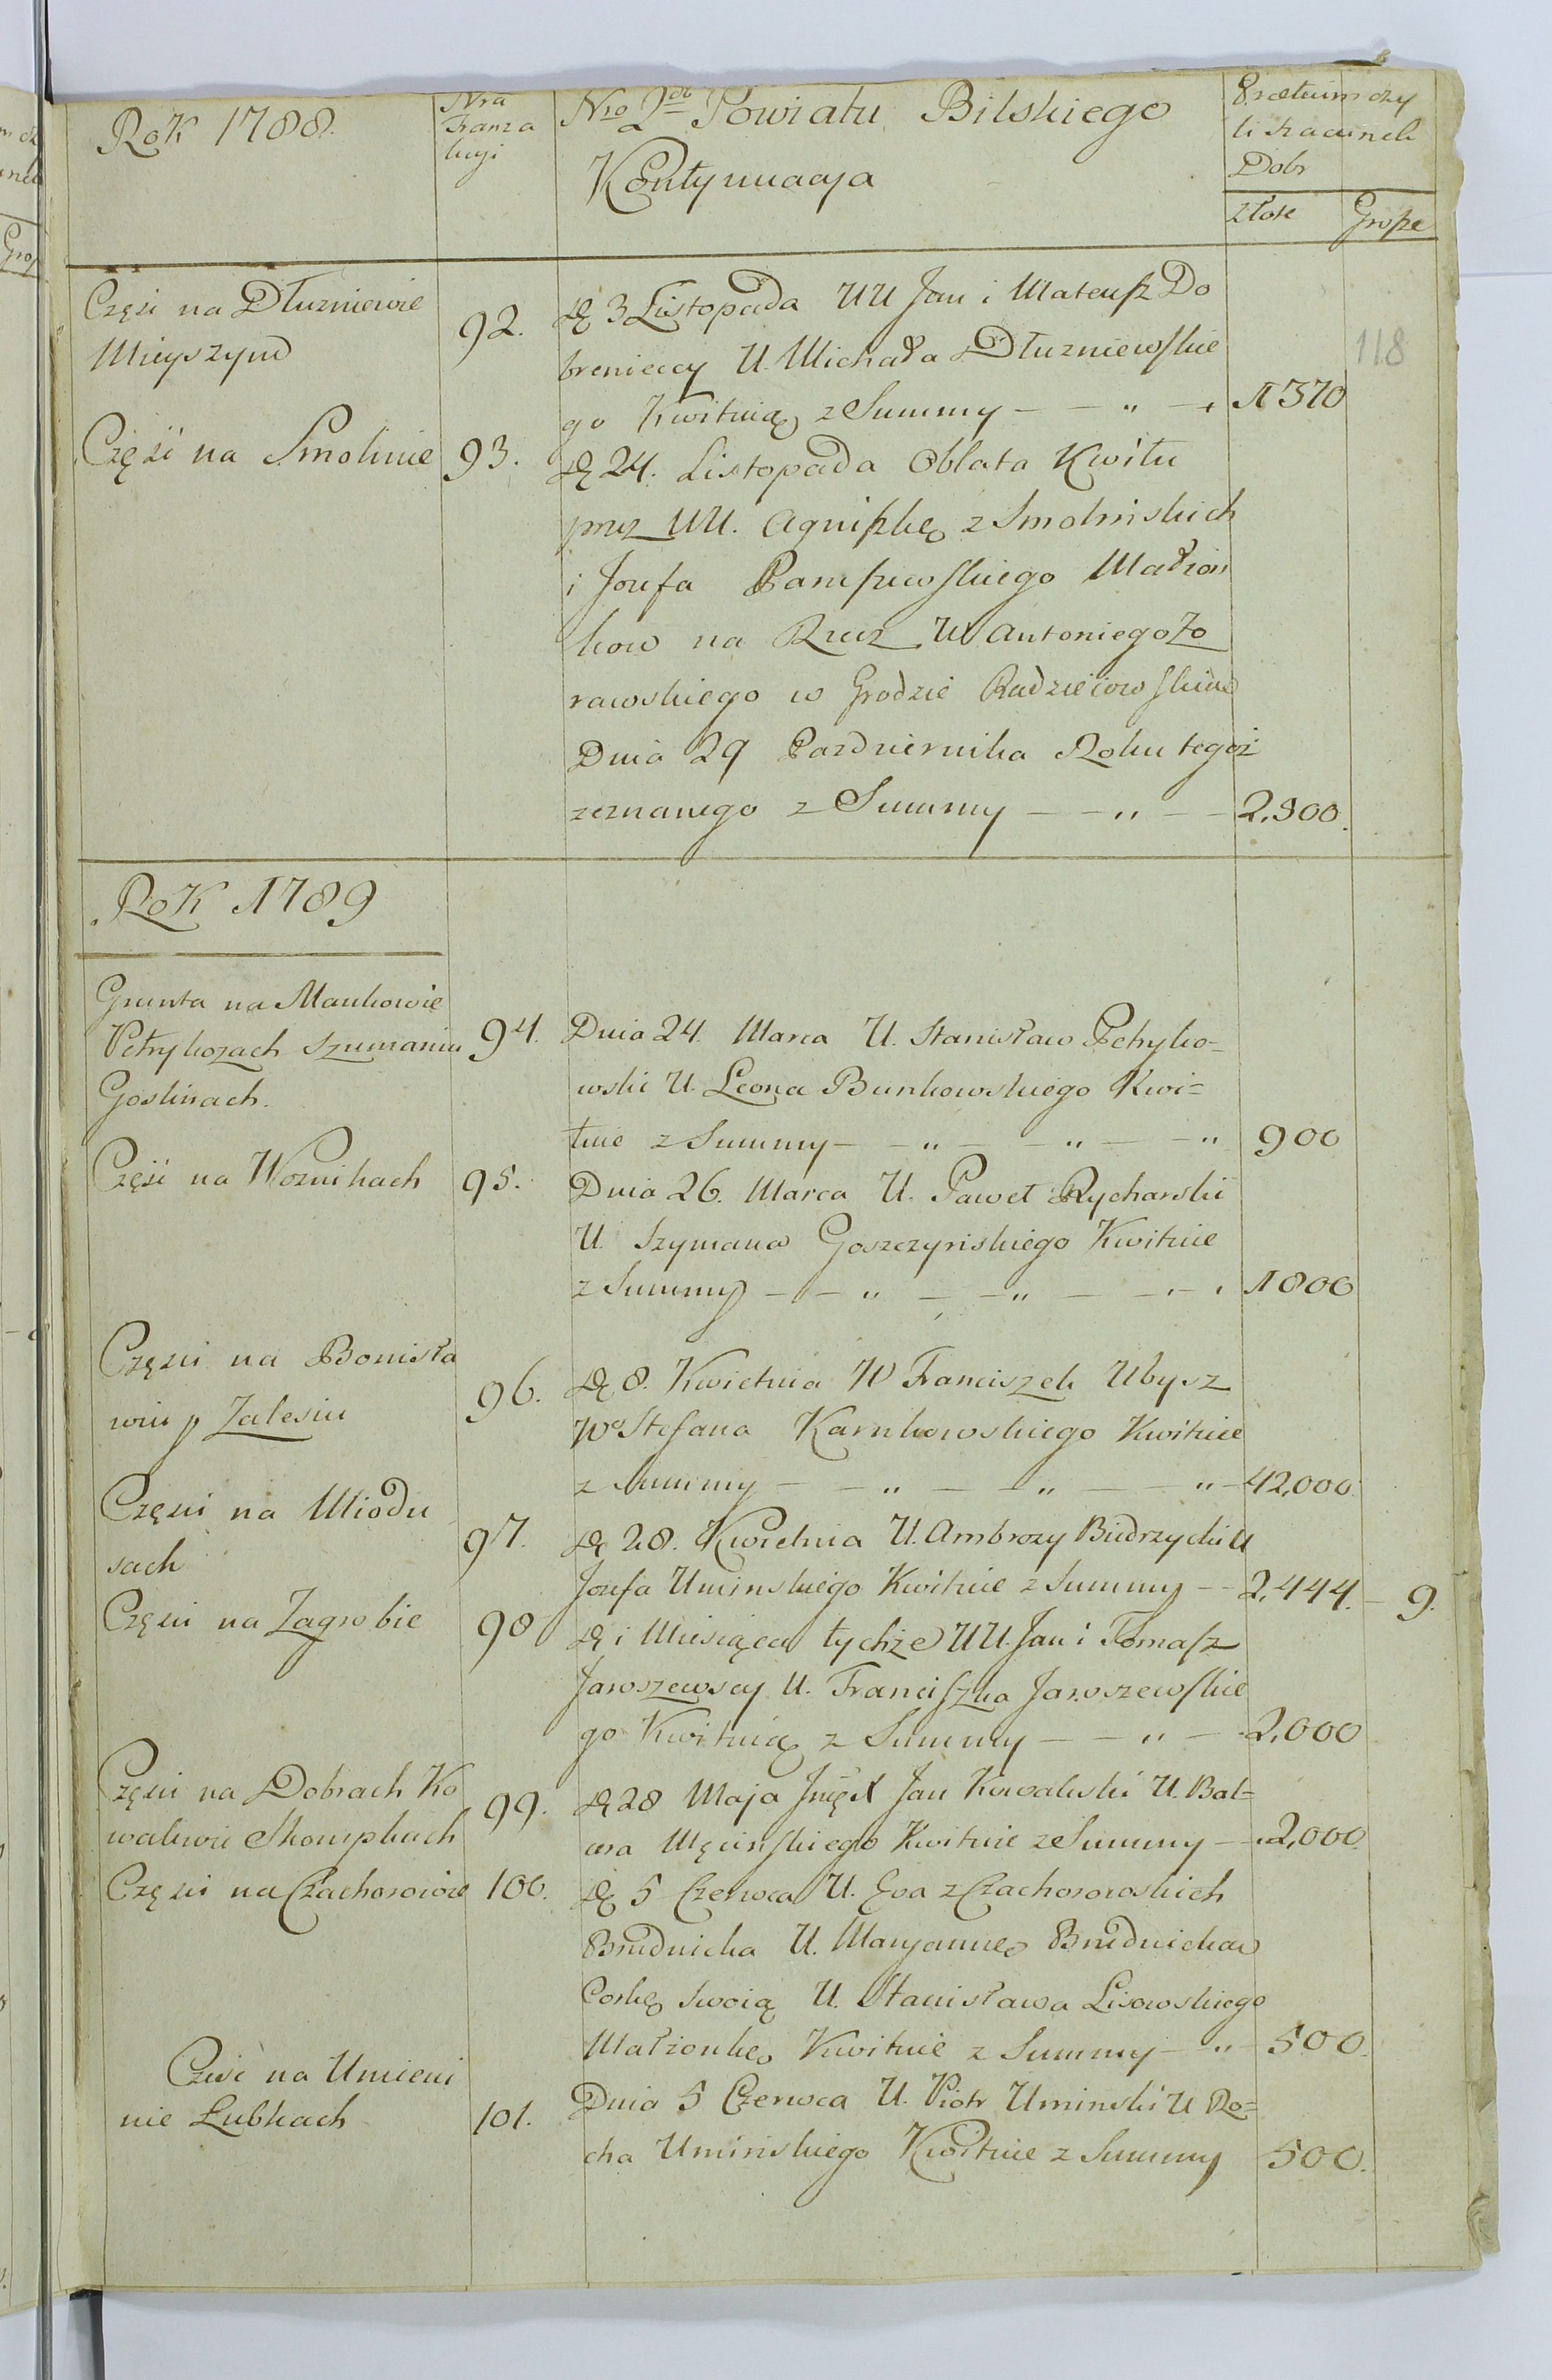 Rok 1788.
Nra Tranza kcyi
Nro 2do Powiatu Bilskiego
Kontynuacya
Pretium czy li szacunek Dobr
złote
Grosze
118
Części na Dłużniewie
Mieyszym
92.
D. 3 Listopada UU Jan i Mateusz Do
brenieccy U. Michała Dłużniewskie
go kwituią z Summy — — „ —
1370
Część na Smolinie
93.
D. 24. Listopada Oblata Kwitu
przez UU. Agniszkę z Smolinskich
i Jozefa Paniszewskiego Małżon
kow na Rzecz W Antoniego Zo
rawskiego w Grodzie Radzieiowskim
Dnia 29 Pazdziernika Roku tegoż
zeznanego z Summy — — „ — —
2,500.
Rok 1789
Grunta na Mankowie
Petrykozach Szumaniu
Goslinach.
94.
Dnia 24. Marca U. Stanisław Petryko=
wski U. Leona Bunkowskiego Kwi=
tuie z Summy — — „ — — „ — — „
900
Część na Woznikach
95.
Dnia 26. Marca U. Paweł Rycharski
U. Szymana Goszczyńskiego Kwituie
z Summy — — „ — — „ — —
1800
Części na Bonisła
wiu y Zalesiu
96.
D. 8. Kwietnia W Franciszek Ubysz
Wo Stefana Karnkowskiego Kwituie
z Summy — — „ — — „ — — „ —
42,000.
Części na Miodu
sach
97.
D. 28. Kwietnia U. Ambrozy Biedrzycki U
Jozefa Uminskiego Kwituie z Summy — —
2,444. — 9.
Części na Zagrobie
98
D. i Miesiąca tychże UU. Jan i Tomasz
Jaroszewscy U. Franciszka Jaroszewskie
go Kwituią z Summy — — „ —
2,000
Części na Dobrach Ko
walewie Skorupkach
99.
D. 28 Maja Jan Kowalewski U. Bal=
cera Męcińskiego Kwituie z Summy —
2,000.
Części na Czachorowie
100.
D. 5 Czerwca U. Ewa z Czachorowskich
Brudnicka U. Maryannę Brudnicką
Corkę swoią U. Stanisława Lisowskiego
Małżonkę Kwituie z Summy — „
500.
Część na Umieni
nie Łubkach
101.
Dnia 5 Czerwca U. Piotr Uminski U Ro=
cha Umińskiego Kwituie z Summy
500.